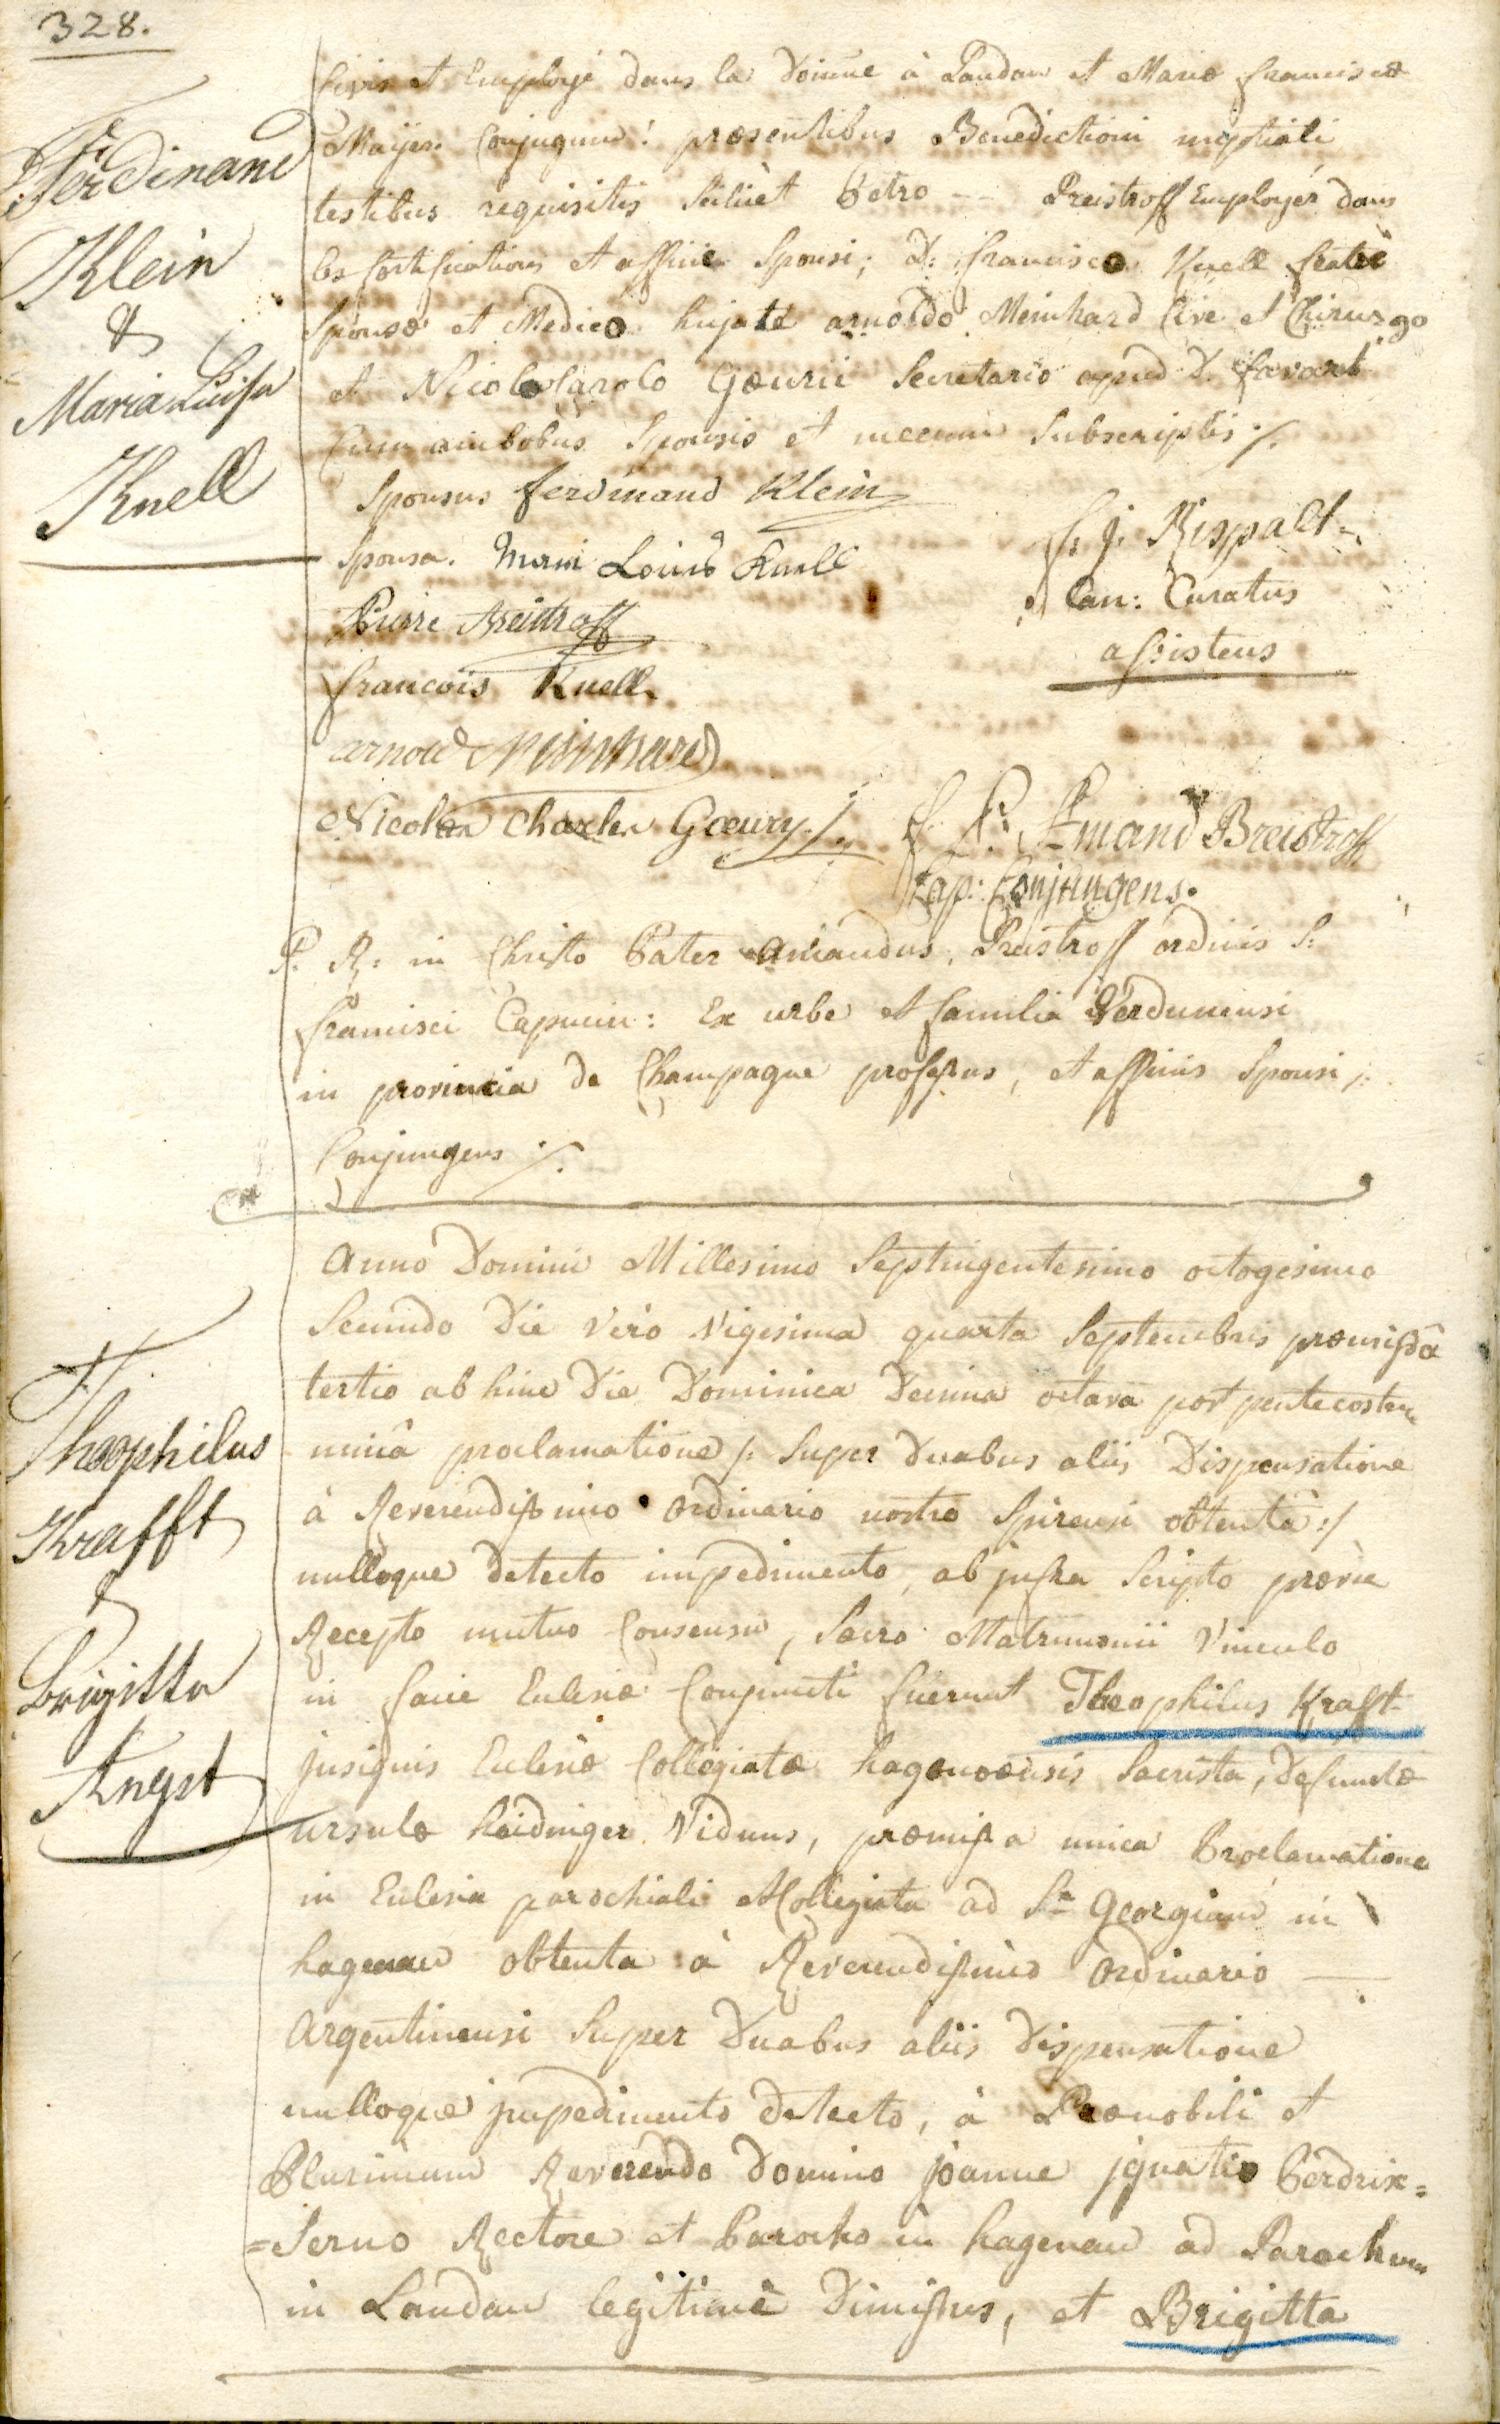 328.
Ferdinand
Klein
&
Maria Luisa
Knell
Civis et Employé dans la Doüane à Landau et Mariæ Franciscæ
Maijer Conjugum: præsentibus Benedictioni nuptiali
testibus requisitis scilicet Petro Preistroff Employér dans
les fortifications et affine Sponsi; D: Francisco Knell fratre
Sponsæ et Medico hujate arnoldo Meinhard Cive et Chirurgo
et Nicolo Carolo Gœurii Secretario apud D.
Cum ambobus Sponsis et mecum Subscriptis ./.
Sponsus ferdinand Klein
Sponsa. Maria Louis Knell
Pierre Breistroff
francois Knell
arnold Meinhard
Nicolas Charles Gœury
f. j. Rispalt
Can: Curatus
assistens
f. P. Amand Breistroff
Cap: Conjungens.
P. R: in Christo Pater Amandus Preistroff ordinis S:
francisci Capucin: Ex urbe et familia Verdunensi
in provincia de Champagne professus, et affinis Sponsi ./.
Conjungens ./.
Theophilus
Krafft
&
Brigitta
Angst
Anno Domini Millesimo Septingentesimo octogesimo
Secundo Die vero vigesima quarta Septembris præmissâ
tertio ab hinc Die Dominica Decima octava post pentecosten
unicâ proclamatione /: Super Duabus aliis Dispensatione
à Reverendissimo Ordinario nostro Spirensi obtentâ :/
nulloque detecto impedimento, ab jnfra Scripto prævie
Recepto mutuo Consensu, Sacro Matrimonii Vinculo
in facie Ecclesiæ Conjuncti fuerunt Theophilus Krafft
jnsignis Ecclesiæ Collegiatæ hagenoensis Sacrista, defunctæ
ursulæ haidinger Viduus, præmissa unica Proclamatione
in Ecclesia parochiali et Collegiata ad St Georgium in
hagenau obtenta à Reverendissimo Ordinario
Argentinensi Super Duabus aliis Dispensatione
nulloque jmpedimento detecto, à Prænobili et
Plurimum Reverendo Domino joanne jgnatio Perdrix=
=Serno Rectore et Parocho in hagenau ad Parochum
in Landau legitimè Dimissus, et Brigitta